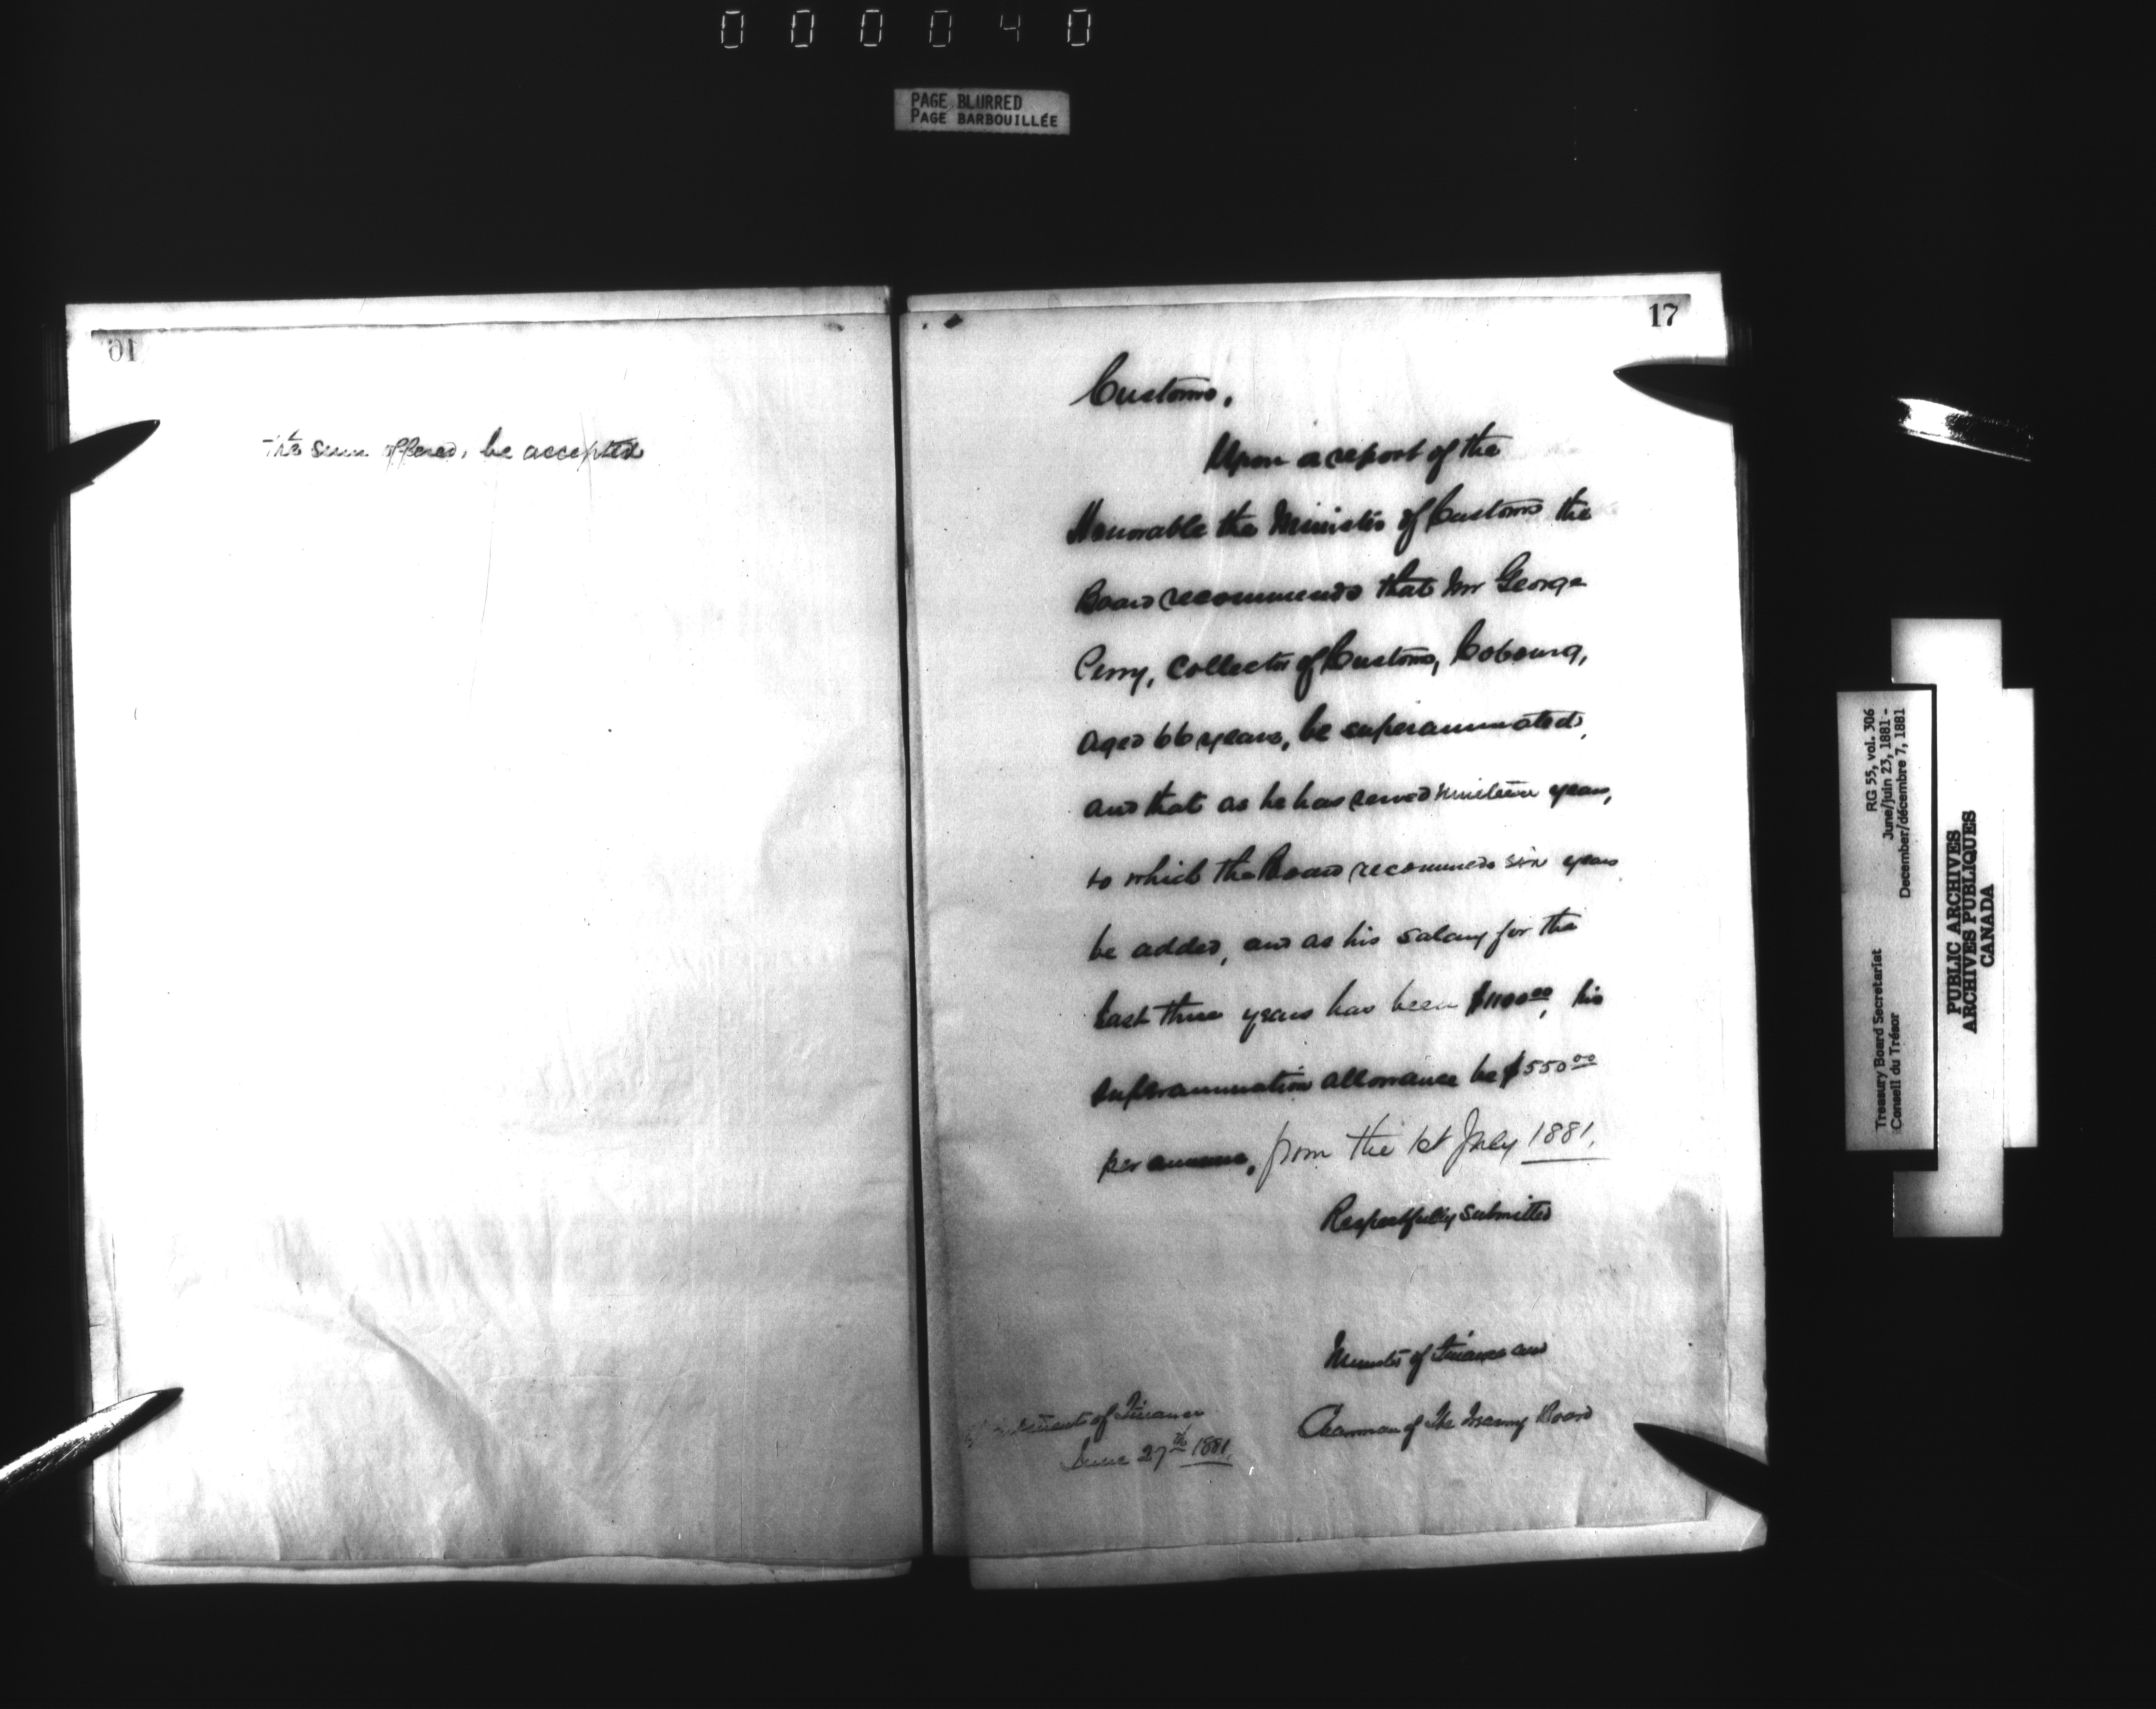 000040
PAGE BLURRED
PAGE BARBOUILLÉE
16
the sum offered, be accepted
17
Customs,
Upon a report of the
Honorable the Minister of Customs the
Board recommends that Mr George
Perry, Collector of Customs, Cobourg,
aged 66 years, be superannuated,
and that as he has served nineteen years,
to which the Board recommends six years
be added, and as his salary for the
last three years has been $1100.00, his
superannuation allowance be $550.00
per annum, from the 1st July 1881.
Respectfully submitted
Minister of Finance and
Chairman of the Treasury Board
Department of Finance
June 27th 1881.
RG 55, vol. 306
June/juin 23, 1881 -
December/décembre 7, 1881
Treasury Board Secretariat
Conseil du Trésor
PUBLIC ARCHIVES
ARCHIVES PUBLIQUES
CANADA